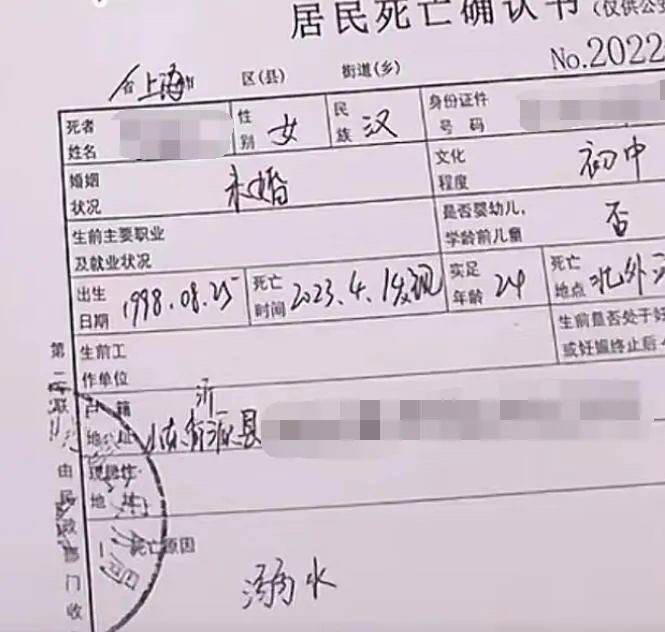 居民死亡确认书(仅供公安
No.2022
上海 区(县) 街道(乡)
死者姓名 性别 女 民族 汉 身份证件号码
婚姻状况 未婚 文化程度 初中
生前主要职业及就业状况 是否婴幼儿,学龄前儿童 否
出生日期 1998.08.25 死亡时间 2023.4.1发现 实足年龄 24 死亡地点 北外
生前工作单位 生前是否处于妊 或妊娠终止后
户籍地址 山东省沂源县
现居住地址
死亡原因
溺水
第二联
由民政部门收